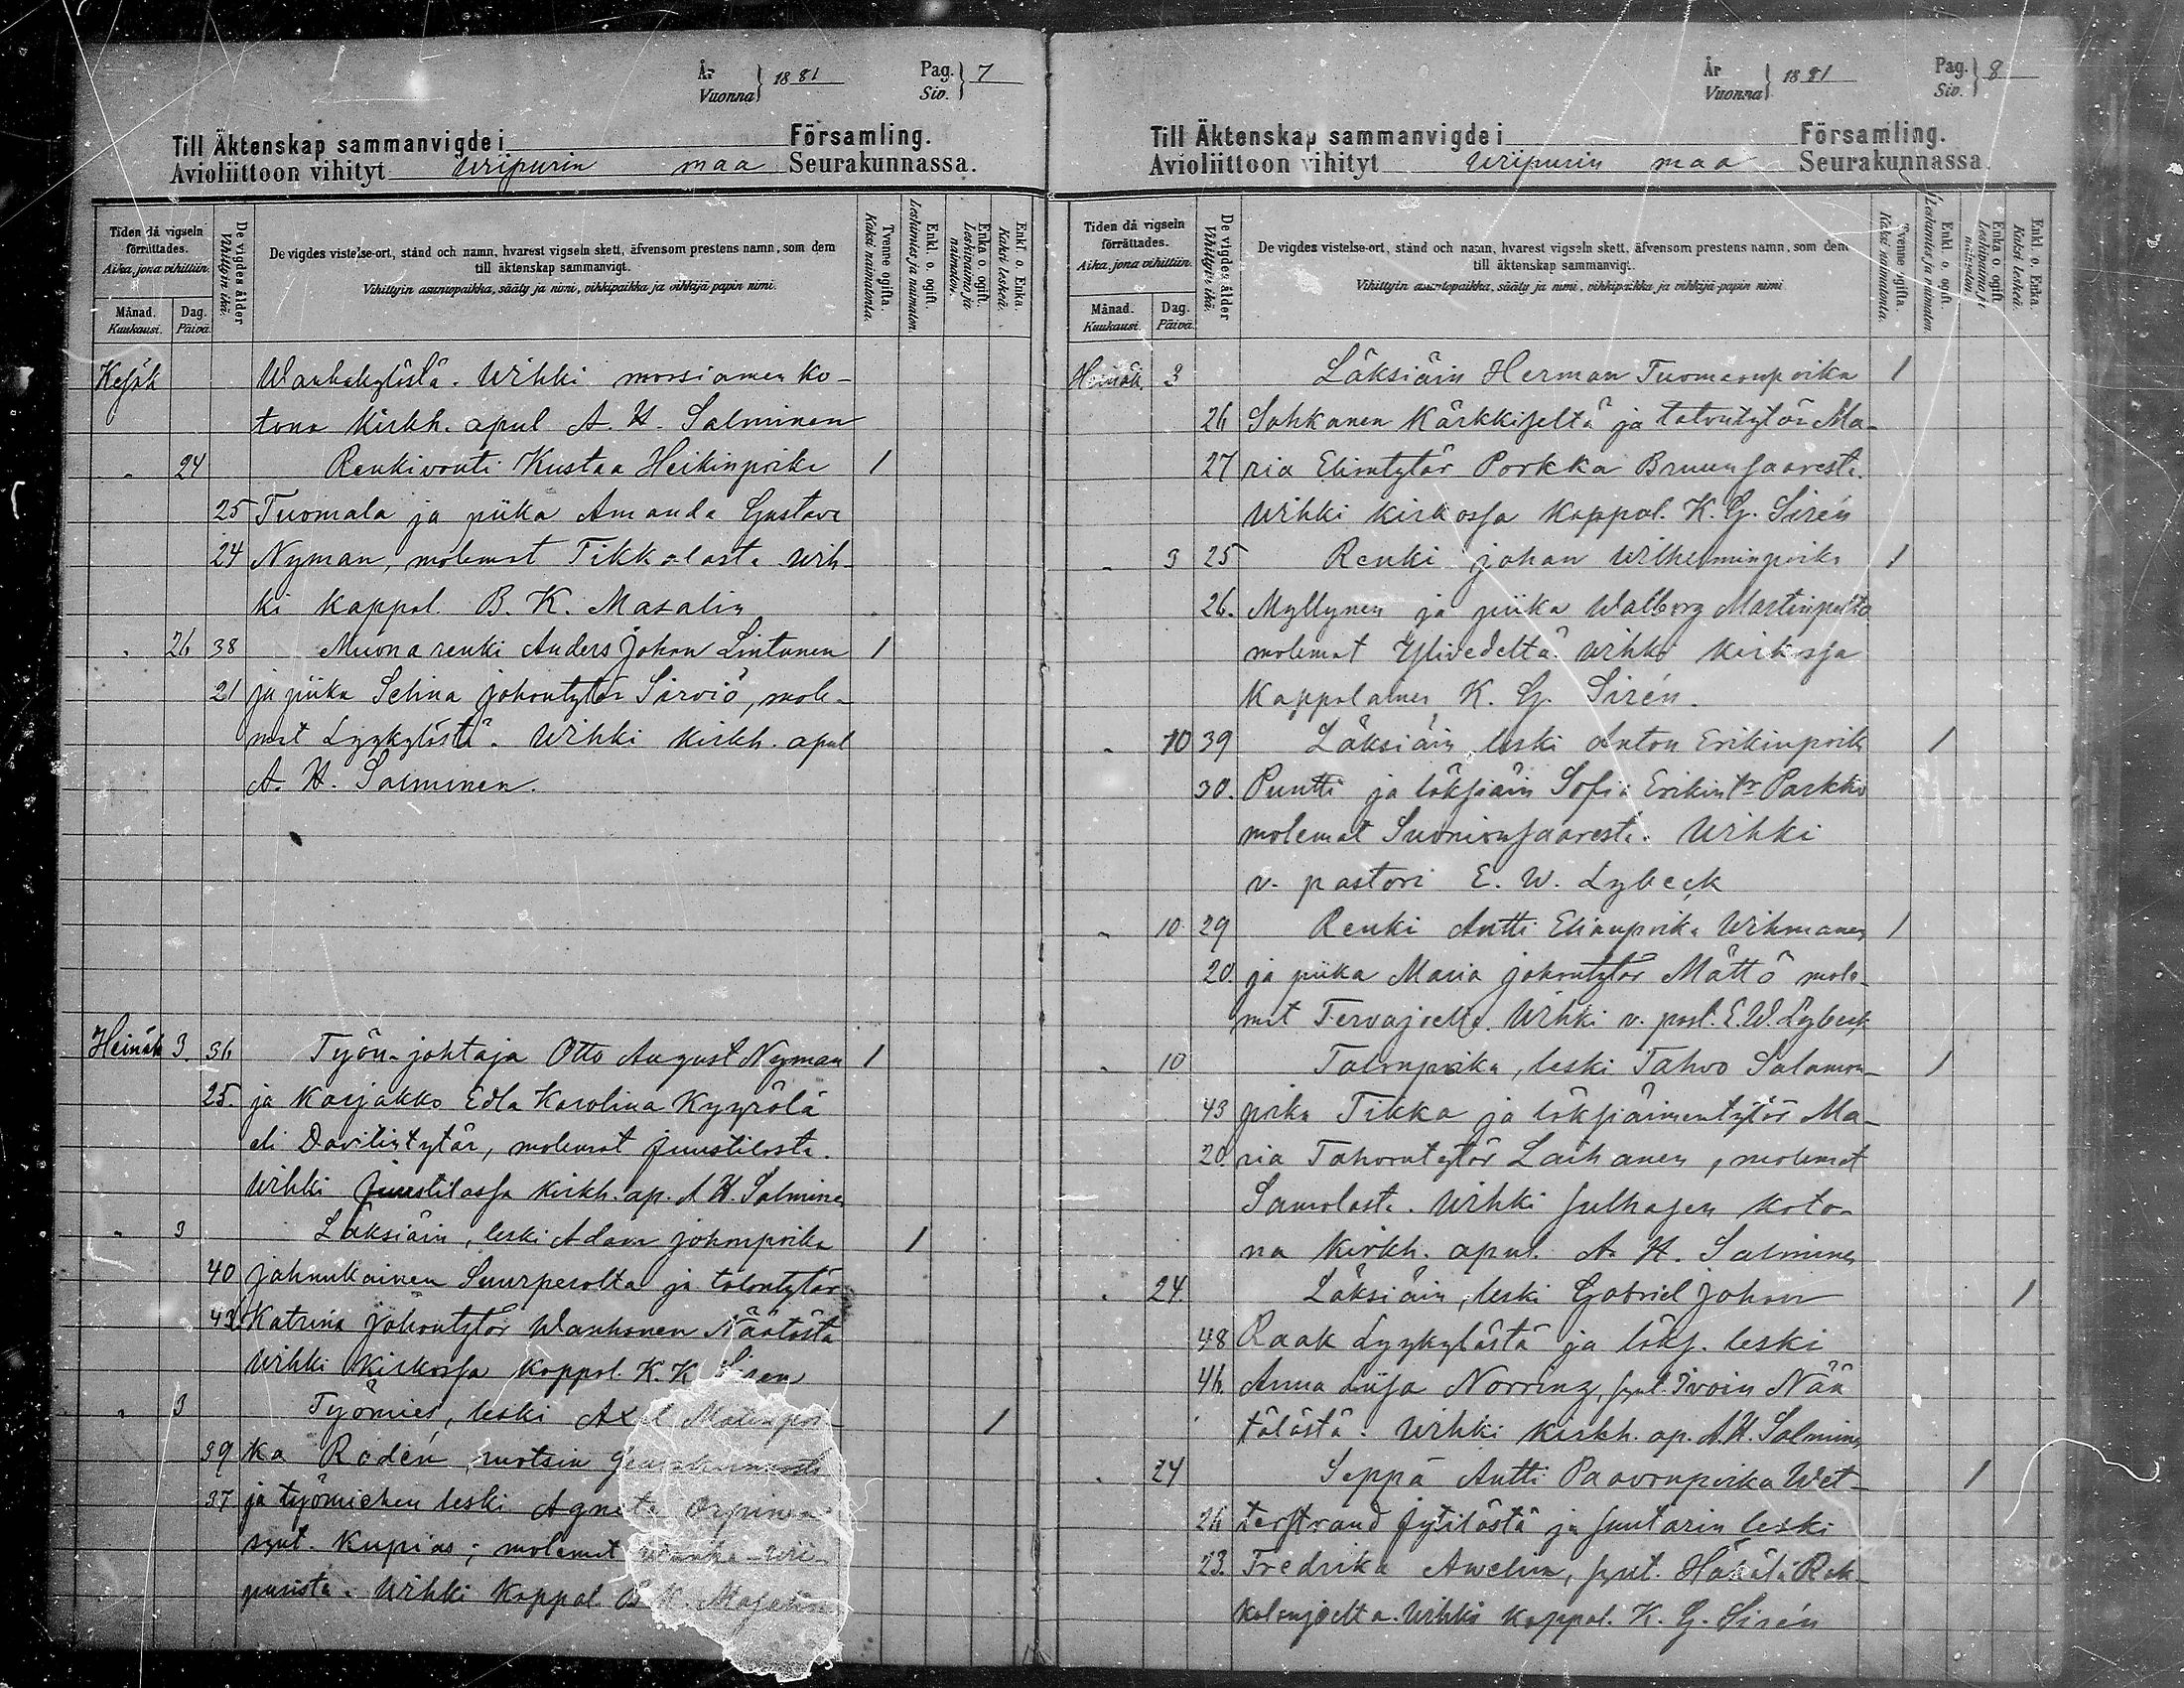 År
Vuonna } 1881
Pag.
Siv. } 7
Till Äktenskap sammanvigde i Församling.
Avioliittoon vihityt Wiipurin maa Seurakunnassa.
Tiden då vigseln förrättades.
Aika, jona vihittiin.
Månad.
Kuukausi.
Dag.
Päivä.
De vigdes ålder
Vihittyin ikä.
De vigdes vistelse-ort, stånd och namn, hvarest vigseln skett, äfvensom prestens namn, som dem
till äktenskap sammanvigt.
Vihittyin asuntopaikka, sääty ja nimi, vihkipaikka ja vihkijä papin nimi.
Tvenne ogifta.
Kaksi naimatonta.
Enkl. o. ogift.
Leskimies ja naimaton.
Enka o. ogift.
Leskivaimo ja naimaton.
Enkl. o. Enka.
Kaksi leskeä.
Kesäk Wanhakylästä. Wihki morsiamen ko-
tona Kirkh. apul A. H. Salminen
" 24 Renkivouti Kustaa Heikinpoika 1
25 Tuomala ja piika Amanda Gustava
24 Nyman, molemat Tikkalasta Wih-
ki kappal. B. K. Masalin
" 26 38 Muona renki Anders Johan Lintunen 1
21 ja piika Selina Johontytär Sirviö, mole-
mat Lyykylästä. Wihki Kirkh. apul
A. H. Salminen.
Heinäk 3. 36 Työn-johtaja Otto August Nyman 1
25. ja Karjakko Edla Karolina Kyyrölä
eli Davitintytär, molemat Juustilasta.
Wihki Juustilassa kirkh. ap. A H. Salminen
" 3 Läksiäin, leski Adam Johonpoika 1
40 Jahnukainen Suurperolta ja talontytär
43. Katrina Johontytär Wanhanen Näätästä
Wihki Kirkossa Kappal. K. K Siren
" 3 Työmies, leski Axel Matinpoi- 1
39 ka Roden, ruotsin
37 ja työmiehen leski Agneta Orpinen
synt. Kupias; molemat Wanha-Wii-
purista. Wihki Kappal. B. K. Masalin
År
Vuonna } 1881
Pag.
Siv. } 8
Till Äktenskap sammanvigde i Församling.
Avioliittoon vihityt Wiipurin maa Seurakunnassa.
Tiden då vigseln förrättades.
Aika, jona vihittiin.
Månad.
Kuukausi.
Dag.
Päivä.
De vigdes ålder
Vihittyin ikä.
De vigdes vistelse-ort, stånd och namn, hvarest vigseln skett, äfvensom prestens namn, som dem
till äktenskap sammanvigt.
Vihittyin asuntopaikka, sääty ja nimi, vihkipaikka ja vihkijä papin nimi.
Tvenne ogifta.
Kaksi naimatonta.
Enkl. o. ogift.
Leskimies ja naimaton.
Enka o. ogift.
Leskivaimo ja naimaton.
Enkl. o. Enka.
Kaksi leskeä.
Heinäk 3 Läksiäin Herman Tuomaanpoika 1
26 Sahkanen Kärkkiseltä ja talontytär Ma-
27 ria Eliantytär Porkka Bruunsaaresta.
Wihki Kirkossa Kappal. K. G. Sirén
" 3 25 Renki Johan Wilhelminpoika 1
26. Myllynen ja piika Walborg Martinpelto
molemat Ylivedeltä. Wihki Kirkossa
Kappalainen K. G. Sirén.
" 10 39 Läksiäin leski Anton Erikinpoik 1
30. Puntti ja läksiäin Sofia Erikint:r Parkko
molemat Suonionsaaresta. Wihki
v. pastori E. W. Lybeck
" 10 29 Renki Antti Elianpoika Wihmanen 1
20. ja piika Maria Johontytär Mättö mole-
mat Tervajoelta. Wihki v. past. E. W. Lybeck
" 10 Talonpoika, leski Tahvo Salamon- 1
43 poika Tikka ja läksiäimentytär Ma-
20. ria Tahvontytär Laihanen, molemat
Samolasta. Wihki sulhasen koto-
na Kirkh. apul. A. H. Salminen
" 24. Läksiäin, leski Gabriel Johan 1
48 Raak Lyykylästä ja läks. leski
46. Anna Liisa Norring, synt. Ivoin Nää
tälästä. Wihki kirkh. ap. A. H. Salminen
" 24 Seppä Antti Paavonpoika Wet- 1
26 terstrand Jytilästä ja suutarin leski
23. Fredrika Awelin, synt. Häkäli Rak-
kolanjoelta. Wihki Kappal. K. G. Sirén